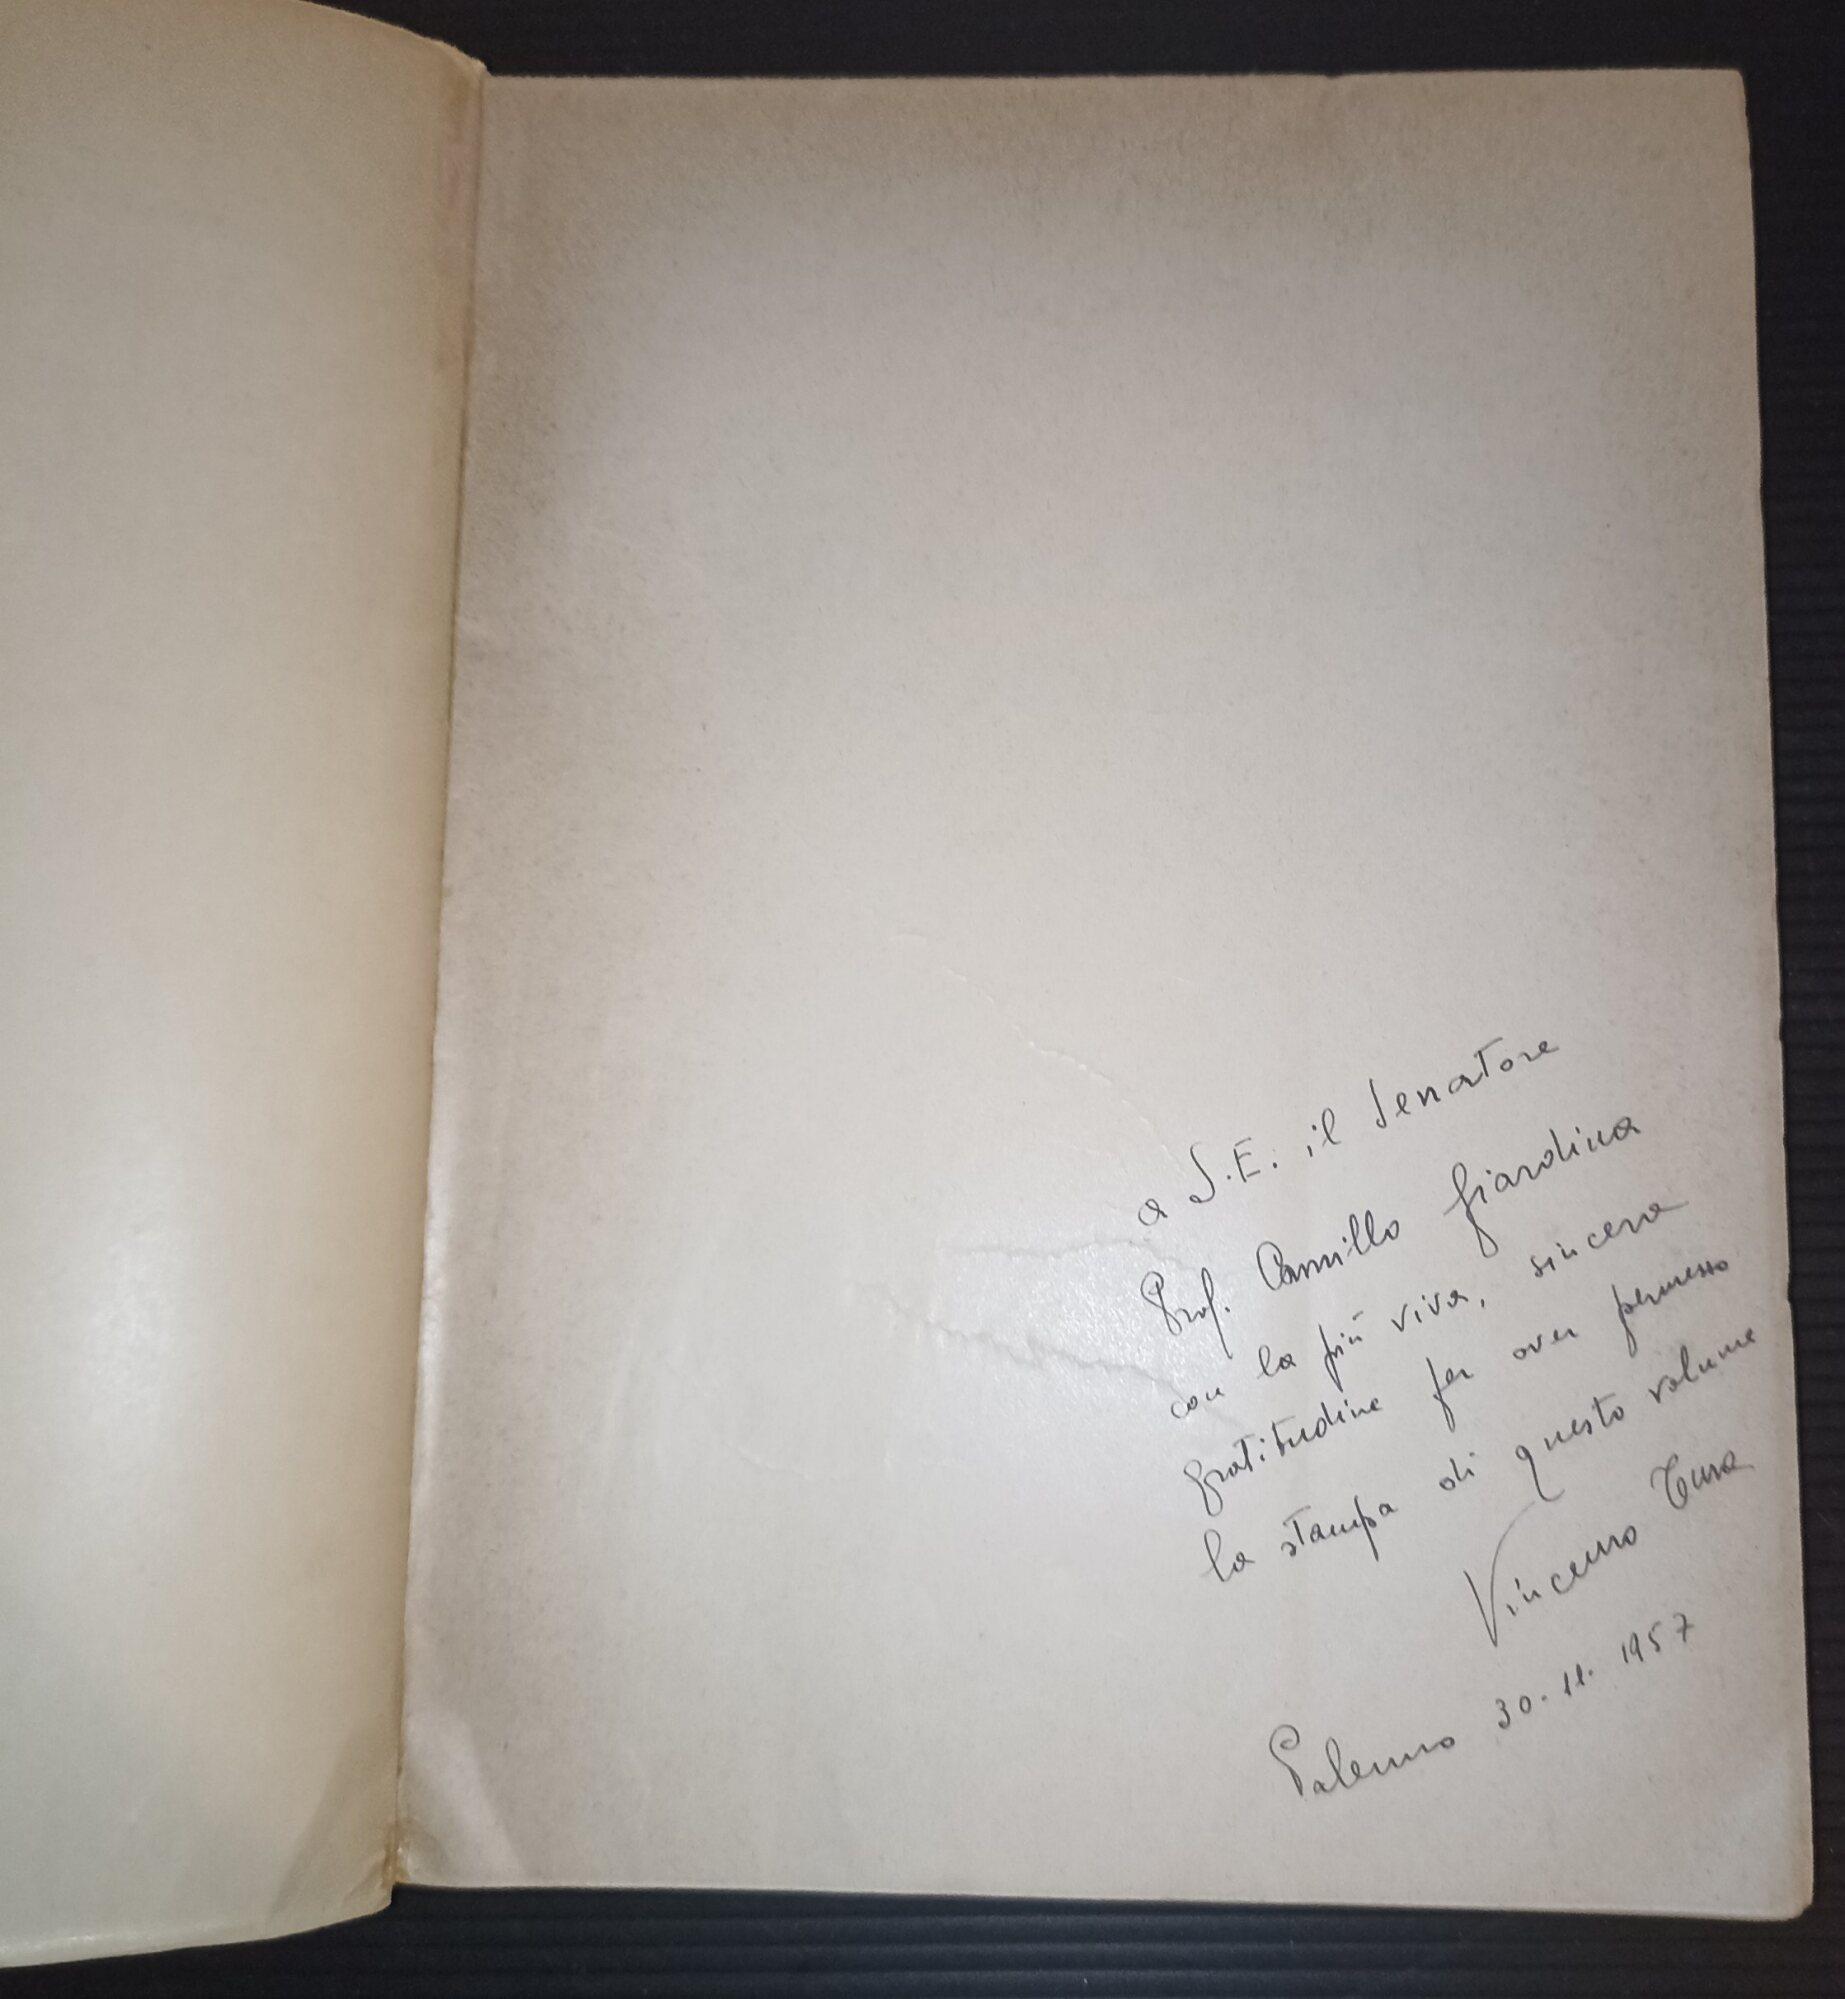 a S.E. il Senatore
Prof. Camillo Giardina
con la più viva, sincera
gratitudine per aver permesso
la stampa di questo volume
Vincenzo Tusa
Palermo 30.11.1957